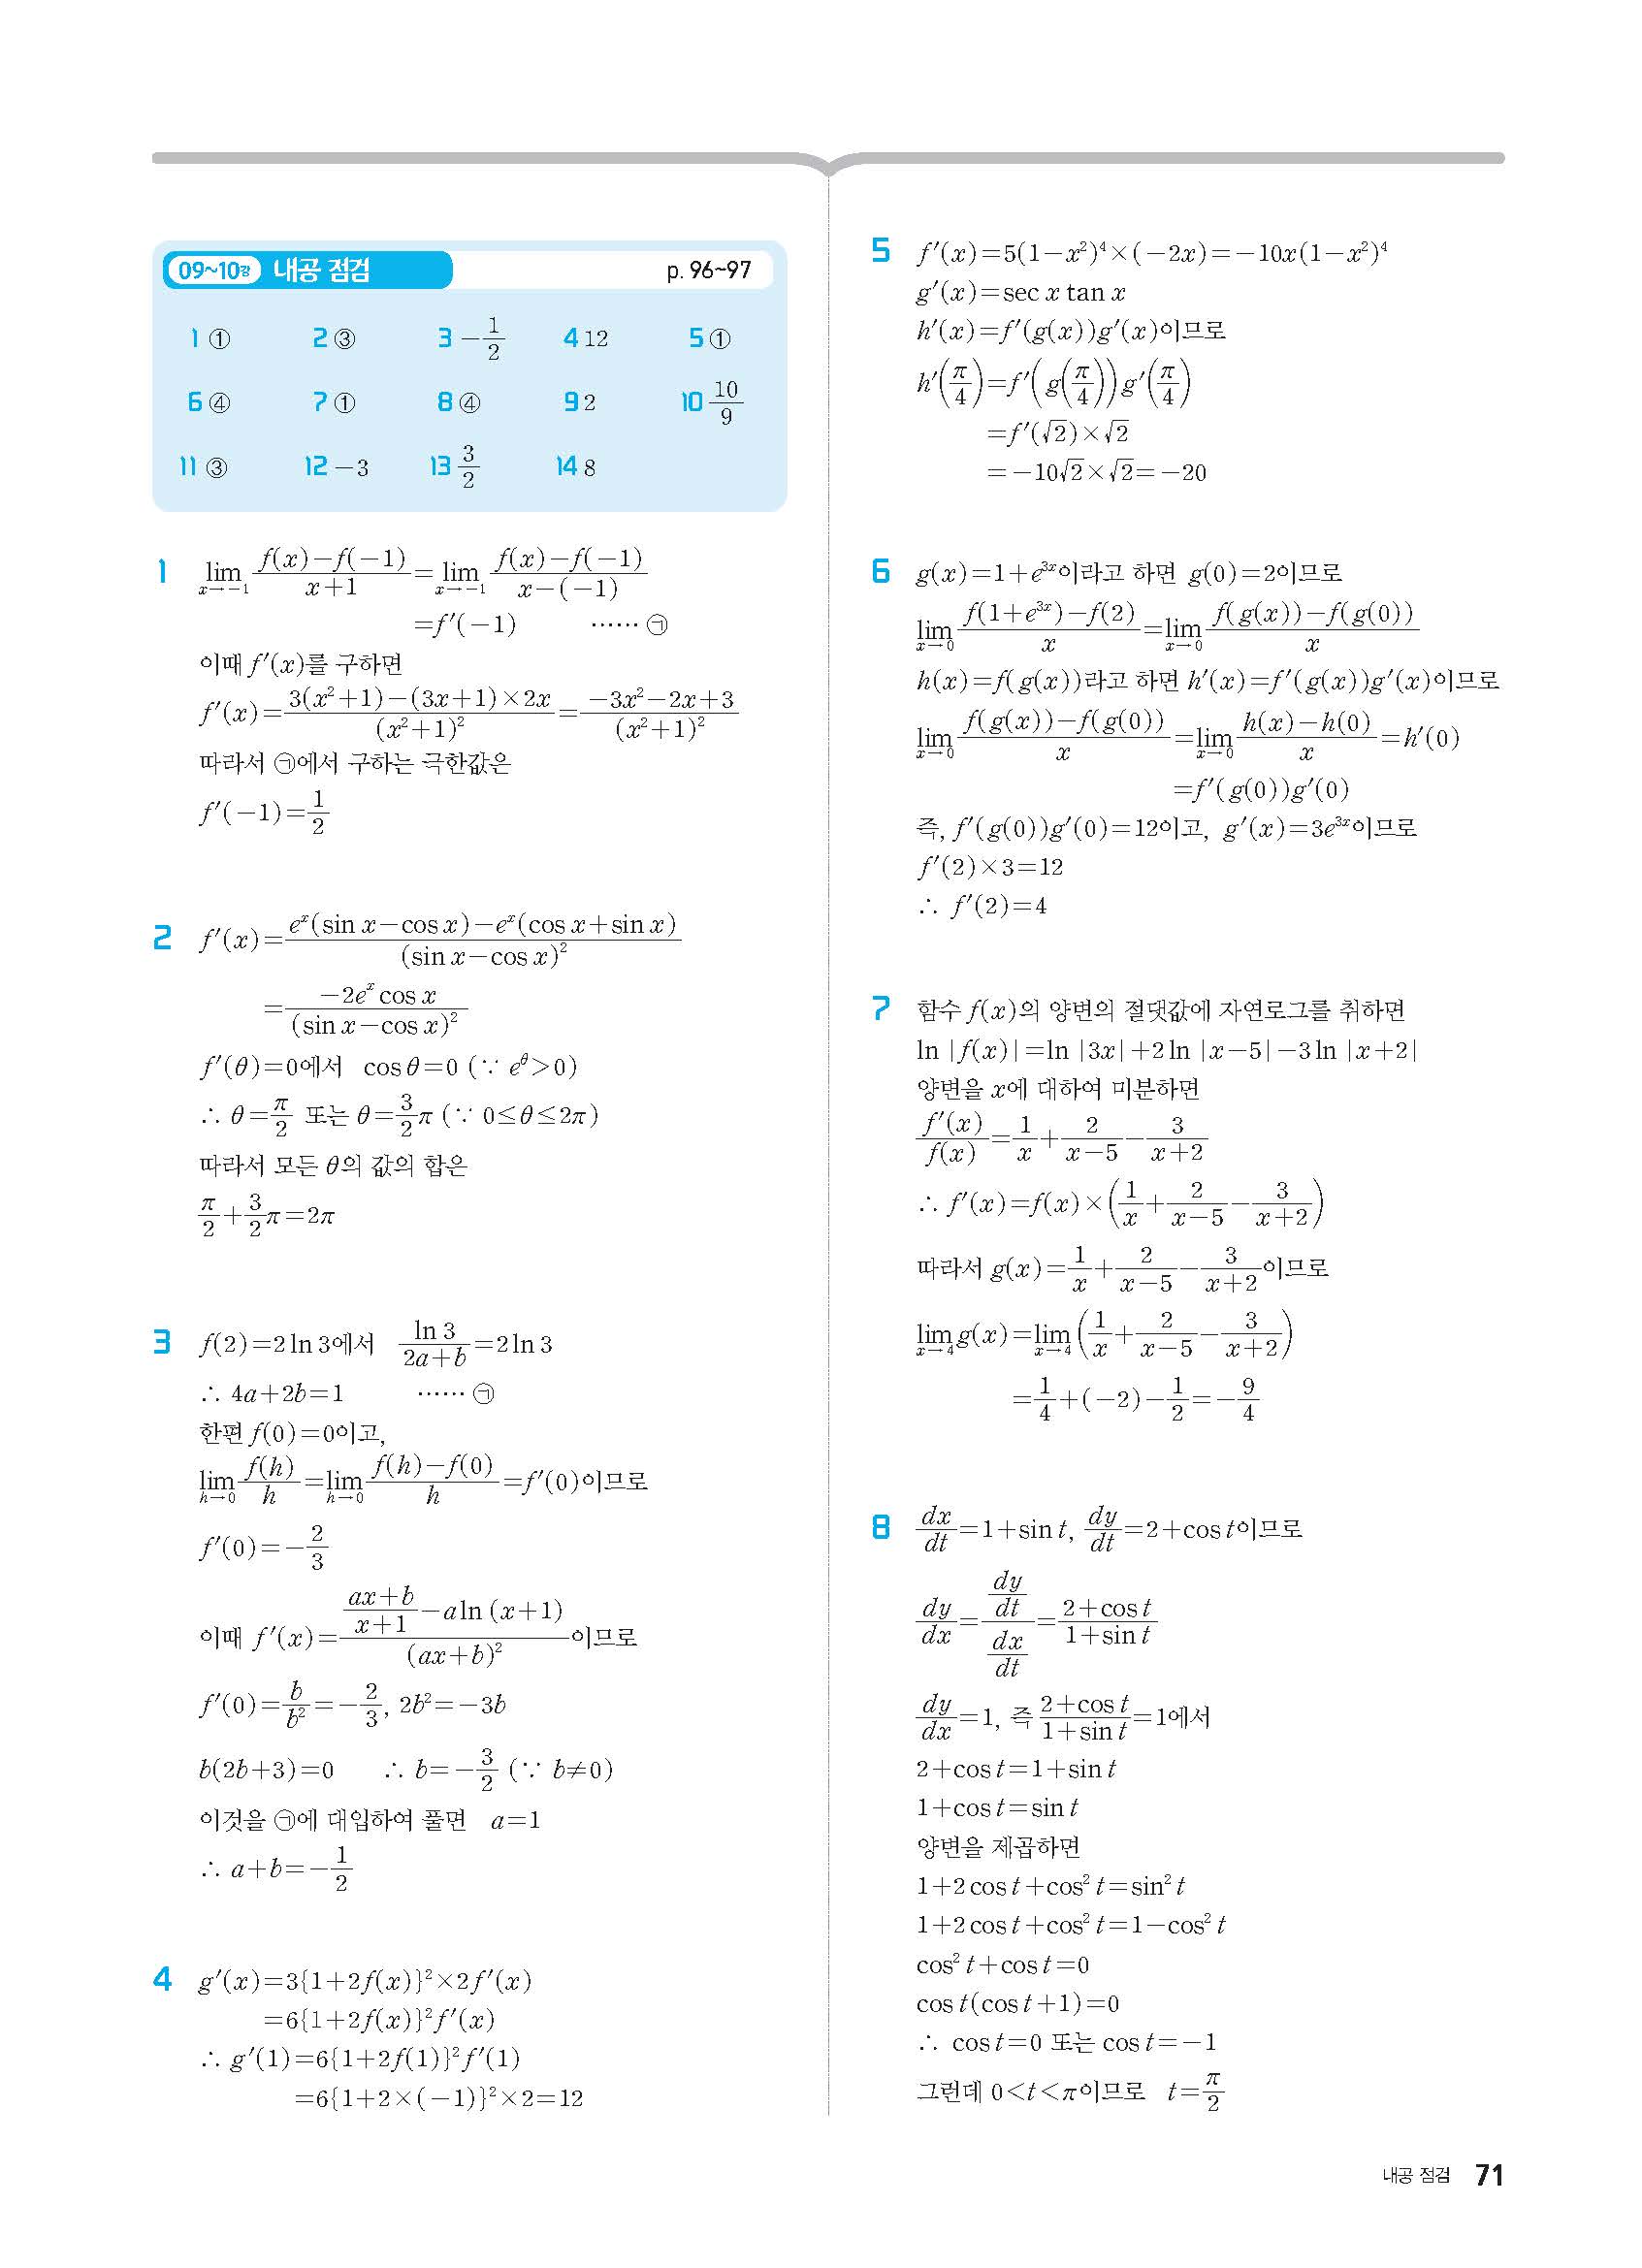 09~10강 내공 점검 p. 96~97
1 ① 2 ③ 3 −1/2 4 12 5 ①
6 ④ 7 ① 8 ④ 9 2 10 10/9
11 ③ 12 −3 13 3/2 14 8
1 lim_{x→−1} (f(x)−f(−1))/(x+1)=lim_{x→−1} (f(x)−f(−1))/(x−(−1))
=f′(−1) …… ㉠
이때 f′(x)를 구하면
f′(x)=(3(x²+1)−(3x+1)×2x)/(x²+1)²=(−3x²−2x+3)/(x²+1)²
따라서 ㉠에서 구하는 극한값은
f′(−1)=1/2
2 f′(x)=(eˣ(sin x−cos x)−eˣ(cos x+sin x))/(sin x−cos x)²
=(−2eˣ cos x)/(sin x−cos x)²
f′(θ)=0에서 cos θ=0 (∵ e^θ>0)
∴ θ=π/2 또는 θ=3/2π (∵ 0≤θ≤2π)
따라서 모든 θ의 값의 합은
π/2+3/2π=2π
3 f(2)=2 ln 3에서 (ln 3)/(2a+b)=2 ln 3
∴ 4a+2b=1 …… ㉠
한편 f(0)=0이고,
lim_{h→0} f(h)/h=lim_{h→0} (f(h)−f(0))/h=f′(0)이므로
f′(0)=−2/3
이때 f′(x)=((ax+b)/(x+1)−a ln (x+1))/(ax+b)²이므로
f′(0)=b/b²=−2/3, 2b²=−3b
b(2b+3)=0 ∴ b=−3/2 (∵ b≠0)
이것을 ㉠에 대입하여 풀면 a=1
∴ a+b=−1/2
4 g′(x)=3{1+2f(x)}²×2f′(x)
=6{1+2f(x)}²f′(x)
∴ g′(1)=6{1+2f(1)}²f′(1)
=6{1+2×(−1)}²×2=12
5 f′(x)=5(1−x²)⁴×(−2x)=−10x(1−x²)⁴
g′(x)=sec x tan x
h′(x)=f′(g(x))g′(x)이므로
h′(π/4)=f′(g(π/4))g′(π/4)
=f′(√2)×√2
=−10√2×√2=−20
6 g(x)=1+e³ˣ이라고 하면 g(0)=2이므로
lim_{x→0} (f(1+e³ˣ)−f(2))/x=lim_{x→0} (f(g(x))−f(g(0)))/x
h(x)=f(g(x))라고 하면 h′(x)=f′(g(x))g′(x)이므로
lim_{x→0} (f(g(x))−f(g(0)))/x=lim_{x→0} (h(x)−h(0))/x=h′(0)
=f′(g(0))g′(0)
즉, f′(g(0))g′(0)=12이고, g′(x)=3e³ˣ이므로
f′(2)×3=12
∴ f′(2)=4
7 함수 f(x)의 양변의 절댓값에 자연로그를 취하면
ln |f(x)|=ln |3x|+2 ln |x−5|−3 ln |x+2|
양변을 x에 대하여 미분하면
f′(x)/f(x)=1/x+2/(x−5)−3/(x+2)
∴ f′(x)=f(x)×(1/x+2/(x−5)−3/(x+2))
따라서 g(x)=1/x+2/(x−5)−3/(x+2)이므로
lim_{x→4} g(x)=lim_{x→4} (1/x+2/(x−5)−3/(x+2))
=1/4+(−2)−1/2=−9/4
8 dx/dt=1+sin t, dy/dt=2+cos t이므로
dy/dx=(dy/dt)/(dx/dt)=(2+cos t)/(1+sin t)
dy/dx=1, 즉 (2+cos t)/(1+sin t)=1에서
2+cos t=1+sin t
1+cos t=sin t
양변을 제곱하면
1+2 cos t+cos² t=sin² t
1+2 cos t+cos² t=1−cos² t
cos² t+cos t=0
cos t(cos t+1)=0
∴ cos t=0 또는 cos t=−1
그런데 0<t<π이므로 t=π/2
내공 점검 71